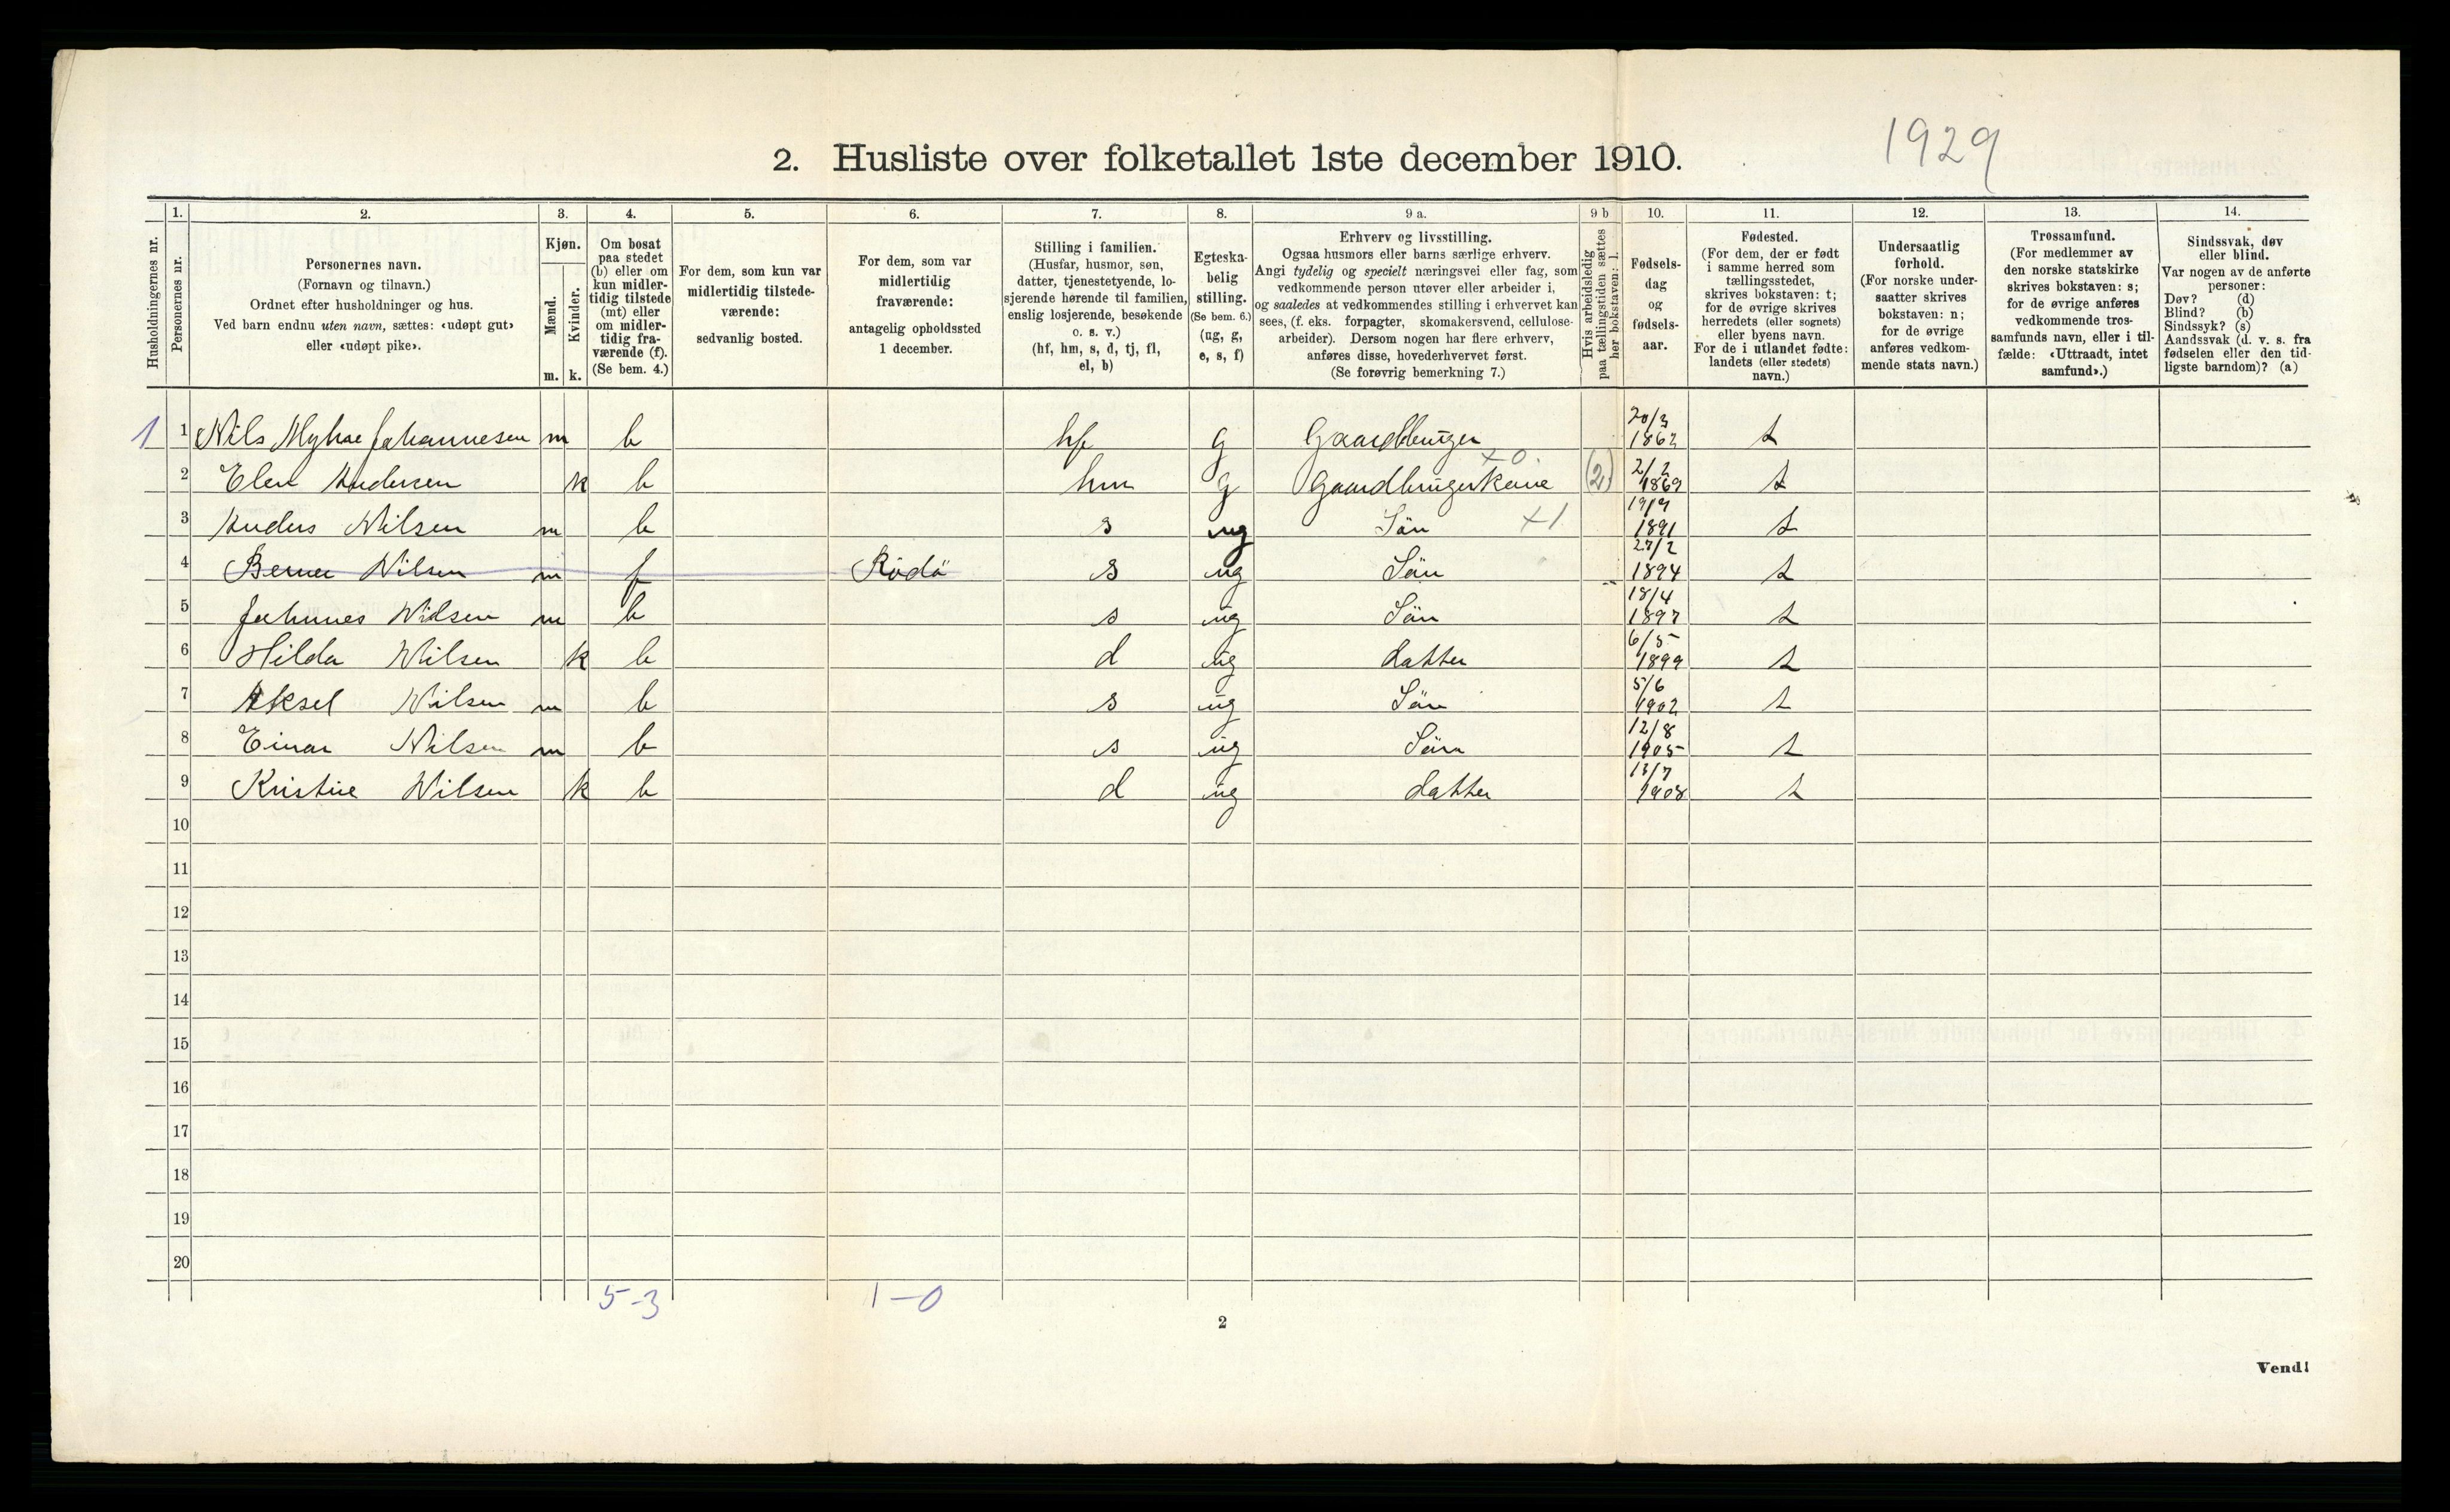 1929
2. Husliste over folketallet 1ste december 1910.
Husholdningernes nr.
1. Personernes nr.
2. Personernes navn.
(Fornavn og tilnavn.)
Ordnet efter husholdninger og hus.
Ved barn endnu uten navn, sættes: «udøpt gut»
eller «udøpt pike».
3. Kjøn.
Mænd. m.
Kvinder. k.
4. Om bosat
paa stedet
(b) eller om
kun midler-
tidig tilstede
(mt) eller
om midler-
tidig fra-
værende (f).
(Se bem. 4.)
5. For dem, som kun var
midlertidig tilstede-
værende:
sedvanlig bosted.
6. For dem, som var
midlertidig
fraværende:
antagelig opholdssted
1 december.
7. Stilling i familien.
(Husfar, husmor, søn,
datter, tjenestetyende, lo-
sjerende hørende til familien,
enslig losjerende, besøkende
o. s. v.)
(hf, hm, s, d, tj, fl,
el, b)
8. Egteska-
belig
stilling.
(Se bem. 6.)
(ug, g,
e, s, f)
9 a. Erhverv og livsstilling.
Ogsaa husmors eller barns særlige erhverv.
Angi tydelig og specielt næringsvei eller fag, som
vedkommende person utøver eller arbeider i,
og saaledes at vedkommendes stilling i erhvervet kan
sees, (f. eks. forpagter, skomakersvend, cellulose-
arbeider). Dersom nogen har flere erhverv,
anføres disse, hovederhvervet først.
(Se forøvrig bemerkning 7.)
9 b Hvis arbeidsledig
paa tællingstiden sættes
her bokstaven: l.
10. Fødsels-
dag
og
fødsels-
aar.
11. Fødested.
(For dem, der er født
i samme herred som
tællingsstedet,
skrives bokstaven: t;
for de øvrige skrives
herredets (eller sognets)
eller byens navn.
For de i utlandet fødte:
landets (eller stedets)
navn.)
12. Undersaatlig
forhold.
(For norske under-
saatter skrives
bokstaven: n;
for de øvrige
anføres vedkom-
mende stats navn.)
13. Trossamfund.
(For medlemmer av
den norske statskirke
skrives bokstaven: s;
for de øvrige anføres
vedkommende tros-
samfunds navn, eller i til-
fælde: «Uttraadt, intet
samfund».)
14. Sindssvak, døv
eller blind.
Var nogen av de anførte
personer:
Døv? (d)
Blind? (b)
Sindssyk? (s)
Aandssvak (d. v. s. fra
fødselen eller den tid-
ligste barndom)? (a)
1 1 Nils Johannesen m b hf g Gaardbruger 20/3 1862 t
2 Elen Andersen k b hm g Gaardbrugerkone +0 (2) 2/2 1869 t
3 Anders Nilsen m b s ug Sön +1 19/9 1891 t
4 Berner Nilsen m f Rödö s ug Sön 27/2 1894 t
5 Johnnes Nilsen m b s ug Sön 18/4 1897 t
6 Hilda Nilsen k b d ug datter 6/5 1899 t
7 Aksel Nilsen m b s ug Sön 5/6 1902 t
8 Einar Nilsen m b s ug Sön 12/8 1905 t
9 Kristine Nilsen k b d ug datter 13/7 1908 t
10
11
12
13
14
15
16
17
18
19
20
5-3 1-0
2
Vend!